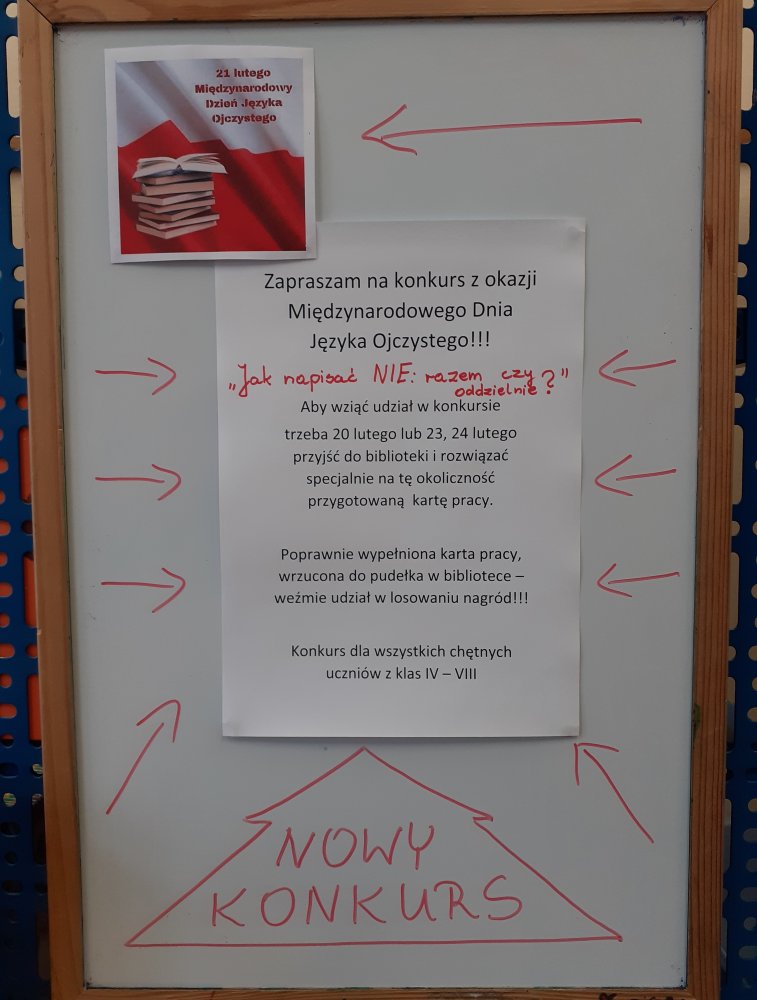 21 lutego
Międzynarodowy
Dzień Języka
Ojczystego
Zapraszam na konkurs z okazji
Międzynarodowego Dnia
Języka Ojczystego!!!
„Jak napisać NIE: razem czy
oddzielnie?”
Aby wziąć udział w konkursie
trzeba 20 lutego lub 23, 24 lutego
przyjść do biblioteki i rozwiązać
specjalnie na tę okoliczność
przygotowaną kartę pracy.
Poprawnie wypełniona karta pracy,
wrzucona do pudełka w bibliotece –
weźmie udział w losowaniu nagród!!!
Konkurs dla wszystkich chętnych
uczniów z klas IV – VIII
NOWY
KONKURS